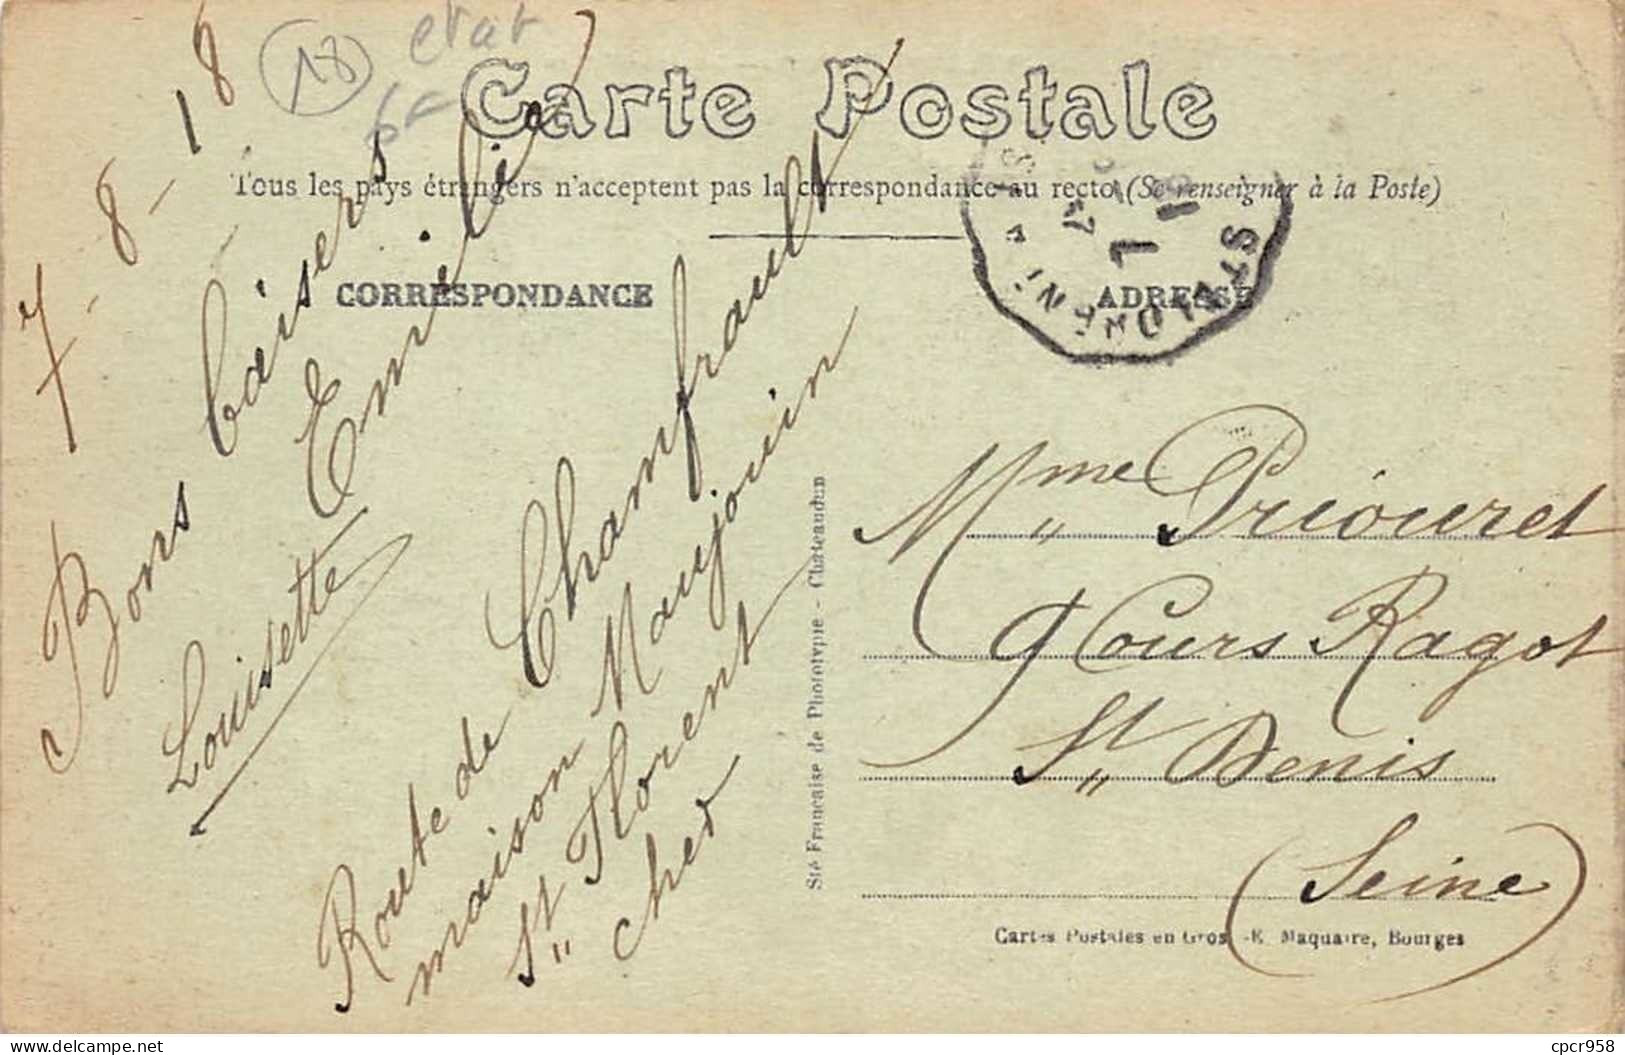 18
etat
Carte Postale
Tous les pays étrangers n'acceptent pas la correspondance au recto (Se renseigner à la Poste)
CORRESPONDANCE
ADRESSE
7-8-18
Bons baisers
Emilie
Louisette
Route de Chanfrault
maison Maujouin
St Florent
Cher
Sté Française de Phototypie - Chateaudun
Mme Priouret
9 Cours Ragot
St Denis
(Seine)
Cartes Postales en Gros -E. Maquaire, Bourges
www.delcampe.net
cpcr958